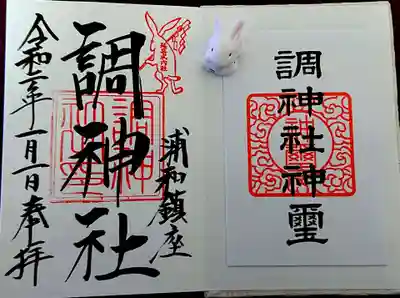 調神社神璽
浦和鎮座
調神社
令和二年一月一日奉拝